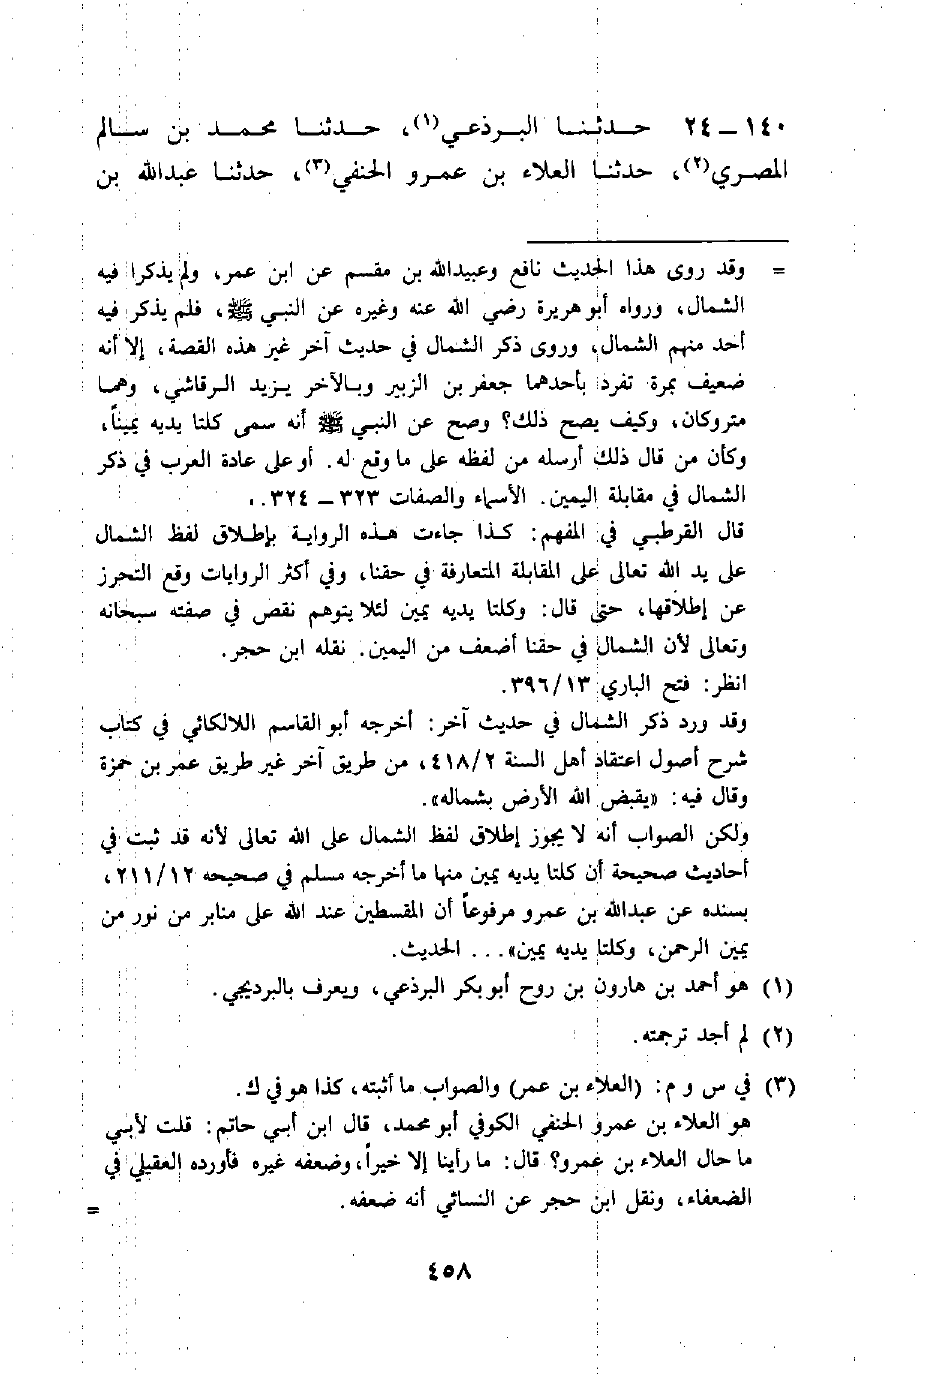 ١٤٠ – ٢٤ حدثنا البرذعي(١)، حدثنا محمد بن سالم
المصري(٢)، حدثنا العلاء بن عمرو الحنفي(٣)، حدثنا عبدالله بن
= وقد روى هذا الحديث نافع وعبيدالله بن مقسم عن ابن عمر، ولم يذكرا فيه
الشمال، ورواه أبو هريرة رضي الله عنه وغيره عن النبي ﷺ، فلم يذكر فيه
أحد منهم الشمال، وروى ذكر الشمال في حديث آخر غير هذه القصة، إلا أنه
ضعيف بمرة تفرد بأحدهما جعفر بن الزبير وبالآخر يزيد الرقاشي، وهما
متروكان، وكيف يصح ذلك؟ وصح عن النبي ﷺ أنه سمى كلتا يديه يميناً،
وكأن من قال ذلك أرسله من لفظه على ما وقع له. أو على عادة العرب في ذكر
الشمال في مقابلة اليمين. الأسماء والصفات ٣٢٣ – ٣٢٤.
قال القرطبي في المفهم: كذا جاءت هذه الرواية بإطلاق لفظ الشمال
على يد الله تعالى على المقابلة المتعارفة في حقنا، وفي أكثر الروايات وقع التحرز
عن إطلاقها، حتى قال: وكلتا يديه يمين لئلا يتوهم نقص في صفته سبحانه
وتعالى لأن الشمال في حقنا أضعف من اليمين. نقله ابن حجر.
انظر: فتح الباري ٣٩٦/١٣.
وقد ورد ذكر الشمال في حديث آخر: أخرجه أبو القاسم اللالكائي في كتاب
شرح أصول اعتقاد أهل السنة ٤١٨/٢، من طريق آخر غير طريق عمر بن حمزة
وقال فيه: «يقبض الله الأرض بشماله».
ولكن الصواب أنه لا يجوز إطلاق لفظ الشمال على الله تعالى لأنه قد ثبت في
أحاديث صحيحة أن كلتا يديه يمين منها ما أخرجه مسلم في صحيحه ٢١١/١٢،
بسنده عن عبدالله بن عمرو مرفوعاً أن المقسطين عند الله على منابر من نور من
يمين الرحمن، وكلتا يديه يمين»... الحديث.
(١) هو أحمد بن هارون بن روح أبو بكر البرذعي، ويعرف بالبرديجي.
(٢) لم أجد ترجمته.
(٣) في س و م: (العلاء بن عمر) والصواب ما أثبته، كذا هو في ك.
هو العلاء بن عمرو الحنفي الكوفي أبو محمد، قال ابن أبي حاتم: قلت لأبي
ما حال العلاء بن عمرو؟ قال: ما رأينا إلا خيراً، وضعفه غيره فأورده العقيلي في
الضعفاء، ونقل ابن حجر عن النسائي أنه ضعفه. =
٤٥٨